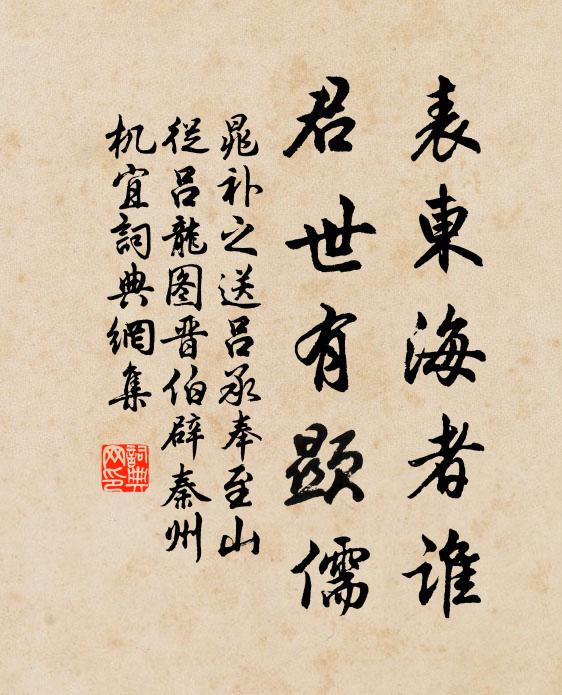 表東海者誰
君世有顕儒
晁补之送吕承奉至山
從吕龍图晋伯辟秦州
机宜詞典網集
詞典
网印